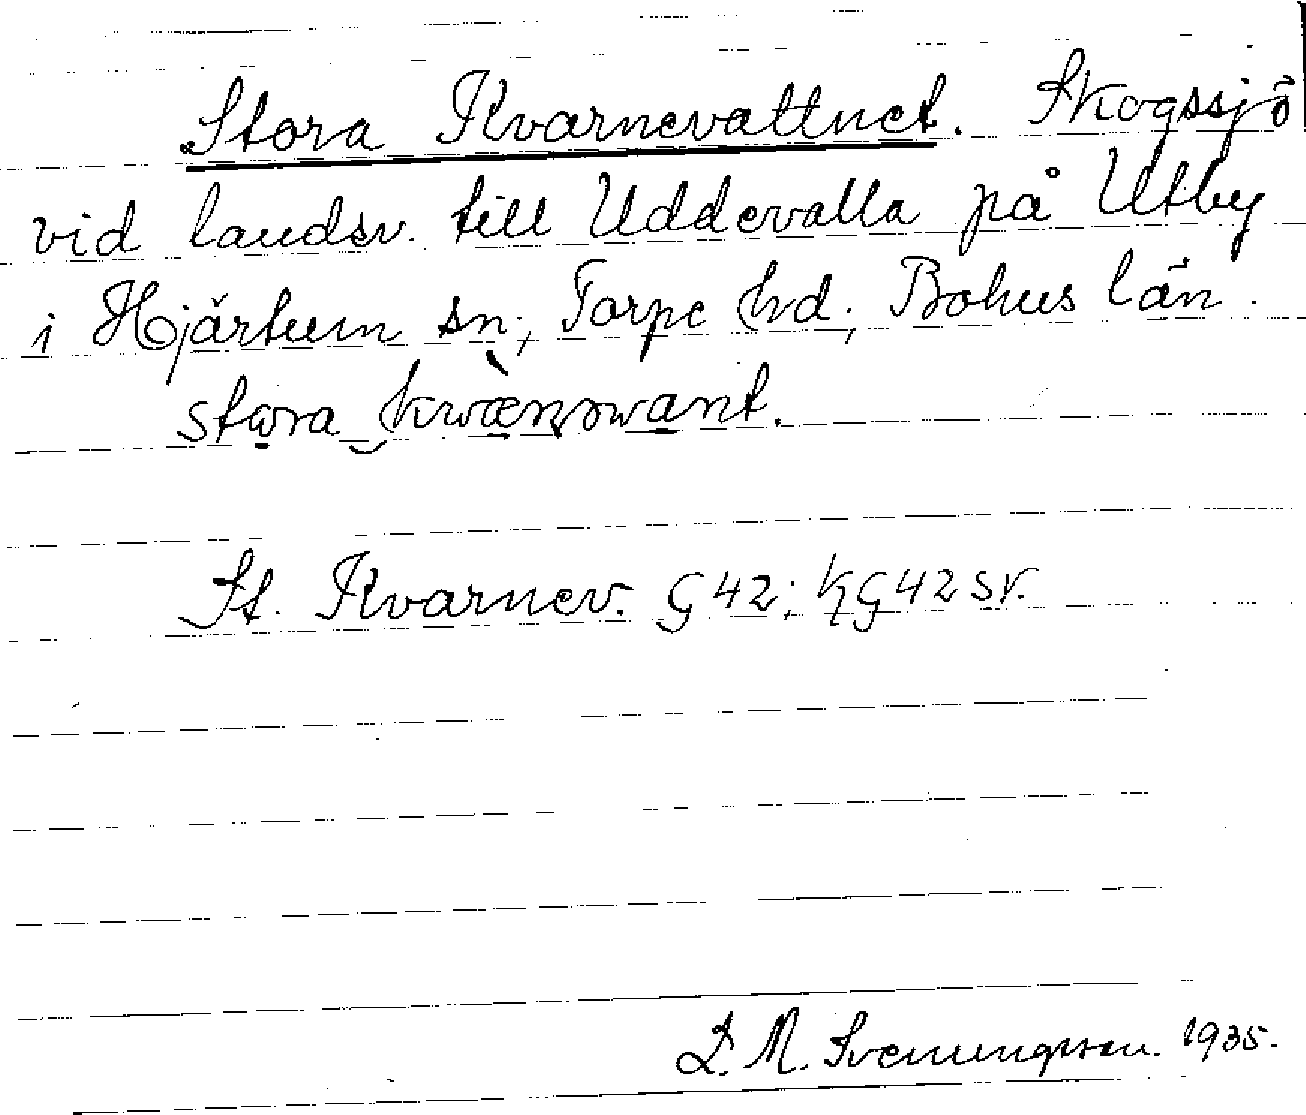 Stora Kvarnevattnet. Skogssjö
vid landsv. till Uddevalla på Utby
i Hjärtum sn; Torpe hd; Bohus län.
stora
St. Kvarnev. G 42; KG 42 SV.
L. M. Svenungsson. 1935.